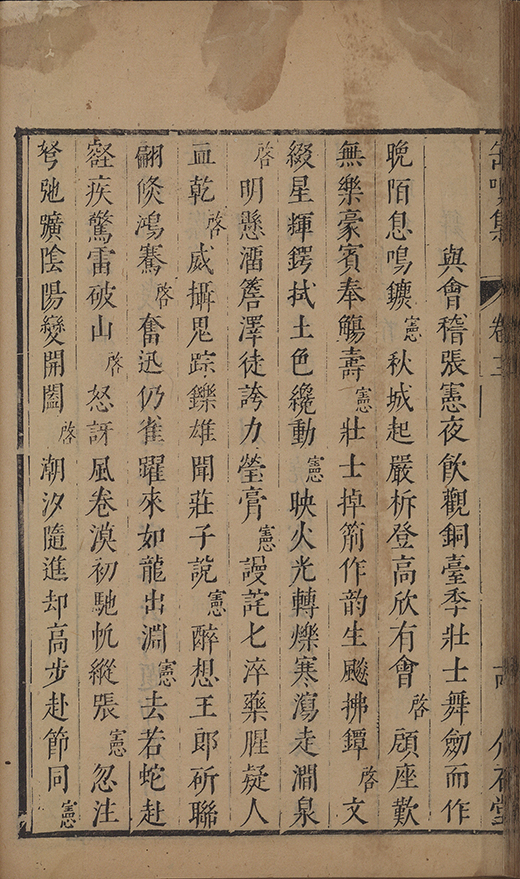 缶鳴集 卷十二
與會稽張憲夜飲觀銅臺李壯士舞劎而作
晚陌息鳴鑣憲秋城起嚴柝登高欣有會啓顧座歎
無樂豪賓奉觴壽憲壯士掉箾作韵生颷拂鐔啓文
綴星輝鍔拭土色纔動憲映火光轉爍寒瀉走澗泉
啓明懸溜簷澤徒誇力瑩膏憲謾詫七淬藥腥疑人
血乾啓威攝鬼踪鑠雄聞莊子說憲醉想王郎斫聯
翩倐鴻騫啓奮迅仍雀躍來如龍出淵憲去若蛇赴
壑疾驚雷破山啓怒訝風卷漠初馳帆縱張憲忽注
弩弛彍陰陽變開闔啓潮汐隨進却高步赴節同憲